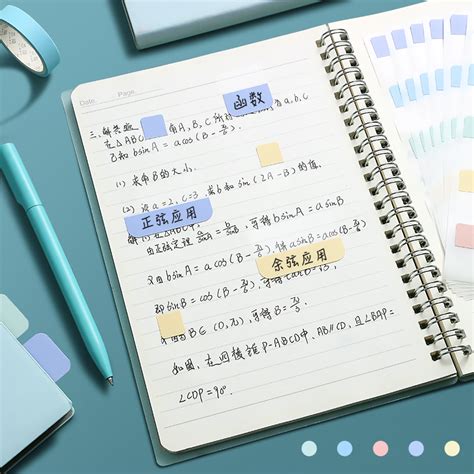 Date. Page.
函数
三、解答题
在△ABC 角A, B, C所对 a, b, c
已知 bsinA = acos(B - π/6).
(1) 求角B的大小.
(2) 设a=2, c=3, 求b和sin(2A-B)的值.
正弦应用
由正弦定理 可得bsinA = asinB
又由bsinA = acos(B - π/6), 得asinB = acos(B - π/6)
余弦应用
即sinB = cos(B - π/6), 可得tanB = √3.
又因为B∈(0, π), 可得B = π/3.
如图, 在四棱锥P-ABCD中, AB∥CD, 且∠BAP=
∠CDP=90°